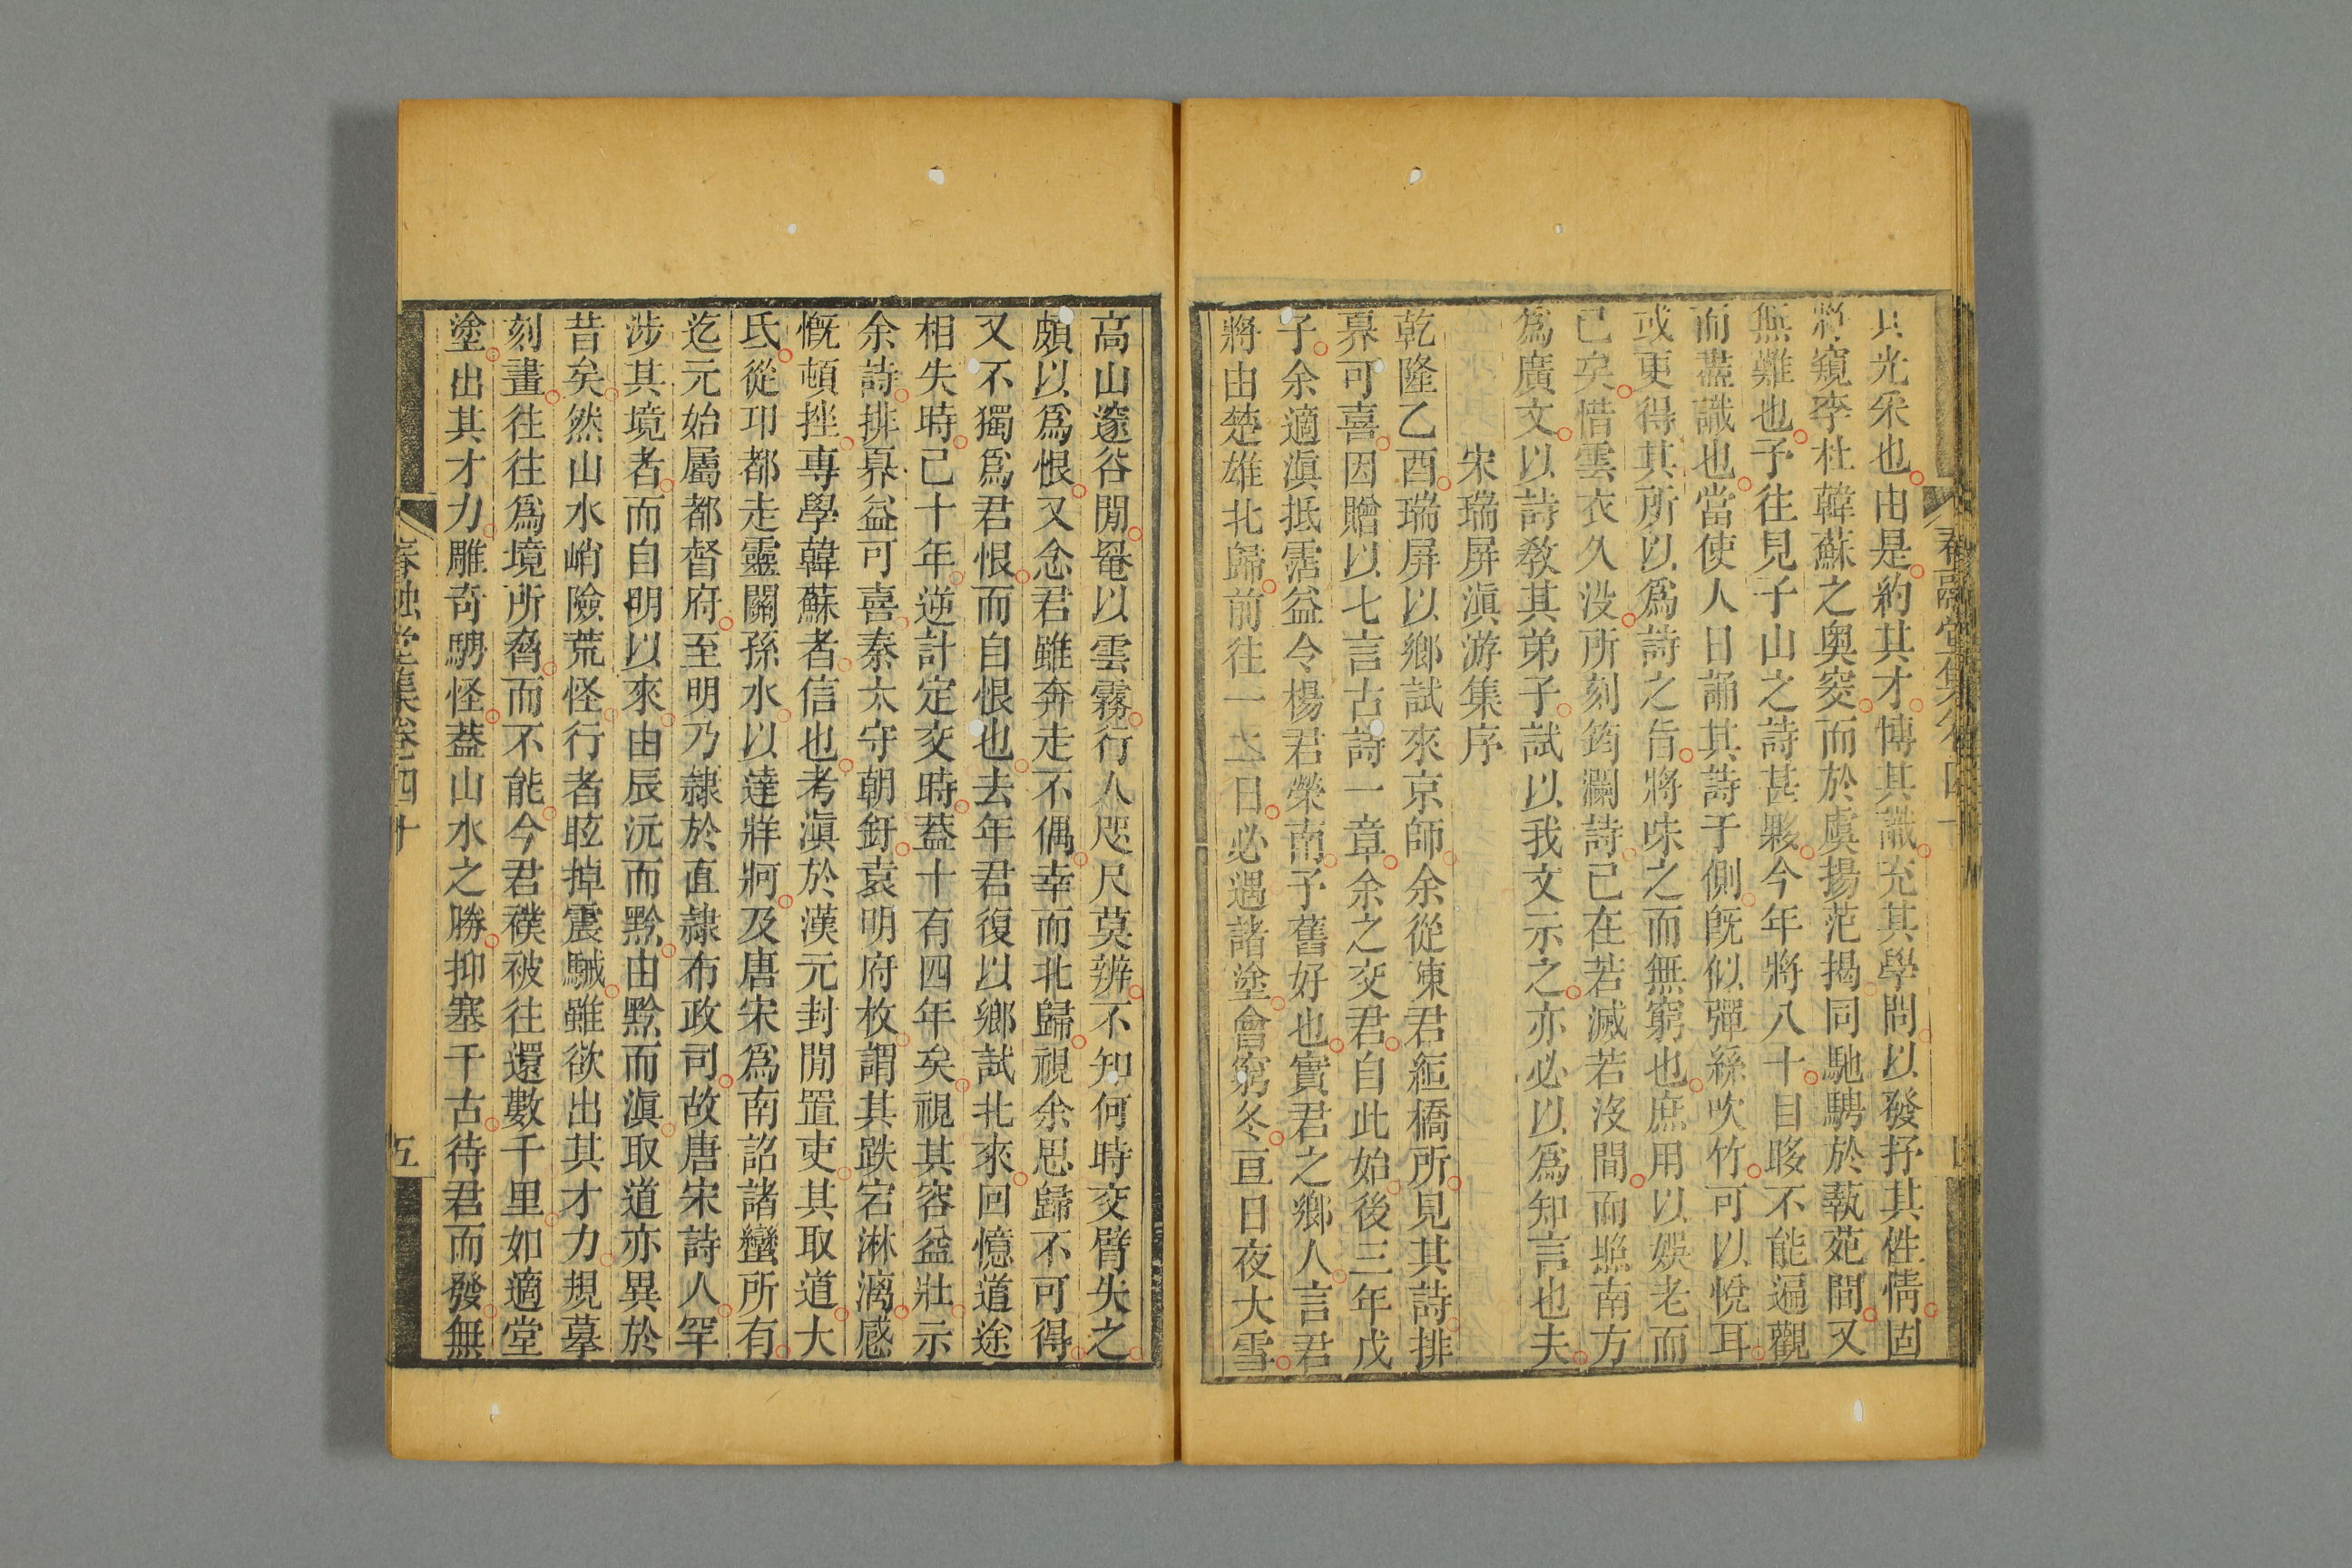 其光采也由是約其才博其識充其學問以發抒其性情固
將窺李杜韓蘇之奧窔而於虞揚范揭同馳騁於蓺苑間又
無難也予往見子山之詩甚夥今年將八十目眵不能遍觀
而盡識也當使人日誦其詩于側旣似彈絲吹竹可以悅耳
或更得其所以爲詩之旨將味之而無窮也庶用以娛老而
已矣惜雲衣久没所刻筠瀾詩已在若滅若沒間而塏南方
爲廣文以詩敎其弟子試以我文示之亦必以爲知言也夫
宋瑞屏滇游集序
乾隆乙酉瑞屏以鄉試來京師余從涷君絚橋所見其詩排
奡可喜因贈以七言古詩一章余之交君自此始後三年戊
子余適滇抵霑益令楊君榮南予舊好也實君之鄉人言君
將由楚雄北歸前往一二日必遇諸塗會窮冬亘日夜大雪
高山邃谷閒罨以雲霧行人咫尺莫辨不知何時交臂失之
頗以爲恨又念君雖奔走不偶幸而北歸視余思歸不可得
又不獨爲君恨而自恨也去年君復以鄉試北來回憶道途
相失時已十年逆計定交時蓋十有四年矣視其容益壯示
余詩排奡益可喜秦太守朝釪袁明府枚謂其跌宕淋漓感
慨頓挫專學韓蘇者信也考滇於漢元封閒置吏其取道大
氏從邛都走靈關孫水以達牂牁及唐宋爲南詔諸蠻所有
迄元始屬都督府至明乃隷於直隷布政司故唐宋詩人罕
涉其境者而自明以來由辰沅而黔由黔而滇取道亦異於
昔矣然山水峭險荒怪行者眩掉震駴雖欲出其才力規摹
刻畫往往爲境所脅而不能今君襆被往還數千里如適堂
塗出其才力雕奇騁怪蓋山水之勝抑塞千古待君而發無
春融堂集卷四十
五